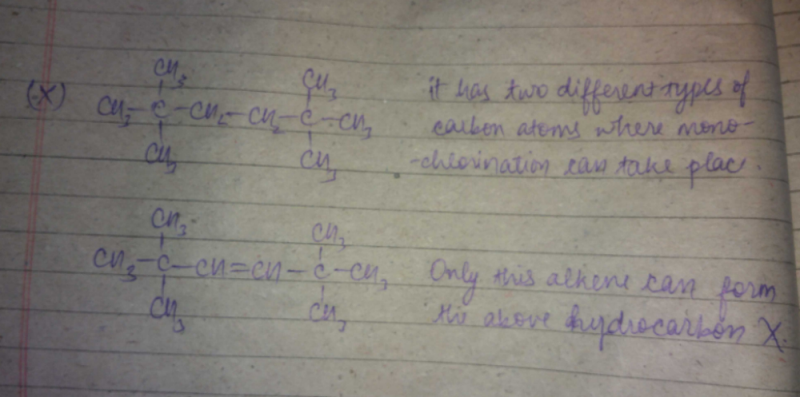 CH3 CH3
(X) CH3-C-CH2-CH2-C-CH3 it has two different types of
CH3 CH3 carbon atoms where mono-
-chlorination can take plac.
CH3 CH3
CH3-C-CH=CH-C-CH3 Only this alkene can form
CH3 CH3 the above hydrocarbon X.